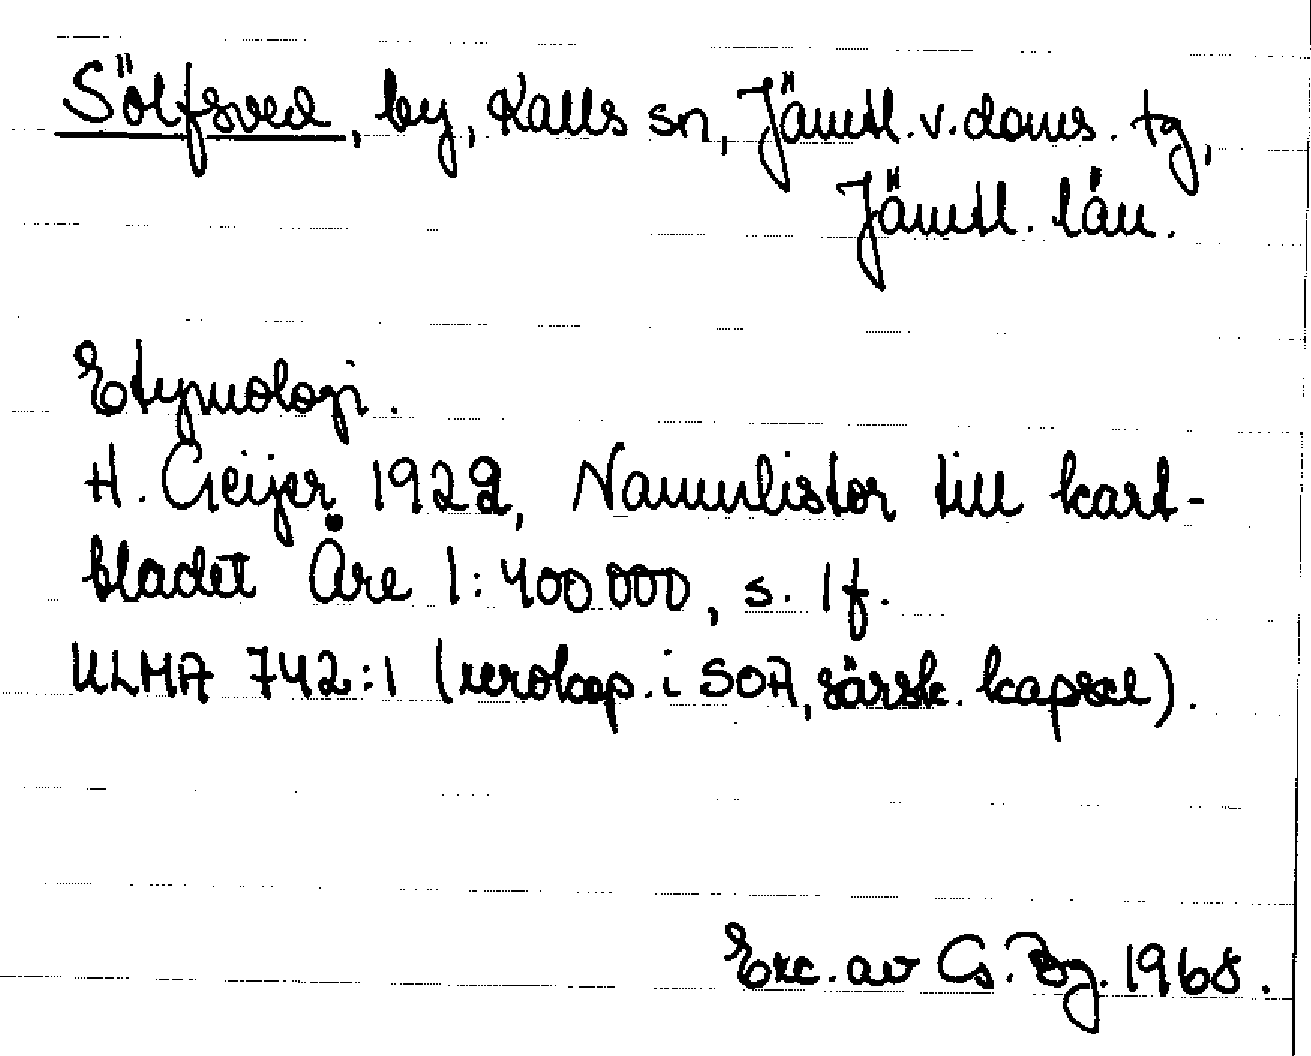 Sölfsved, by, Kalls sn, Jämtl. v. doms. tg,
Jämtl. län.
Etymologi.
H. Geijer 1922, Namnlistor till kart-
bladet Åre 1:400000, s. 1 f.
ULMA 742:1 (xerokop. i SOA, särsk. kapsel).
Exc. av G. Bg. 1968.